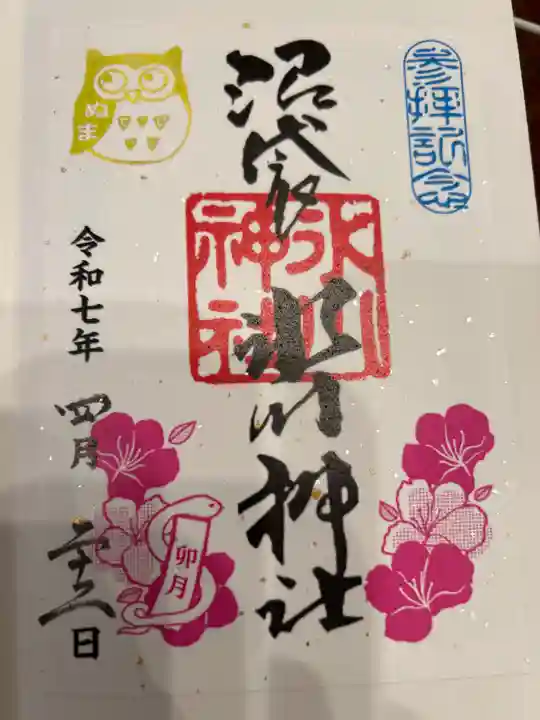 参拝記念
沼袋
氷川神社
氷川神社
ぬま
令和七年
四月
日
卯月